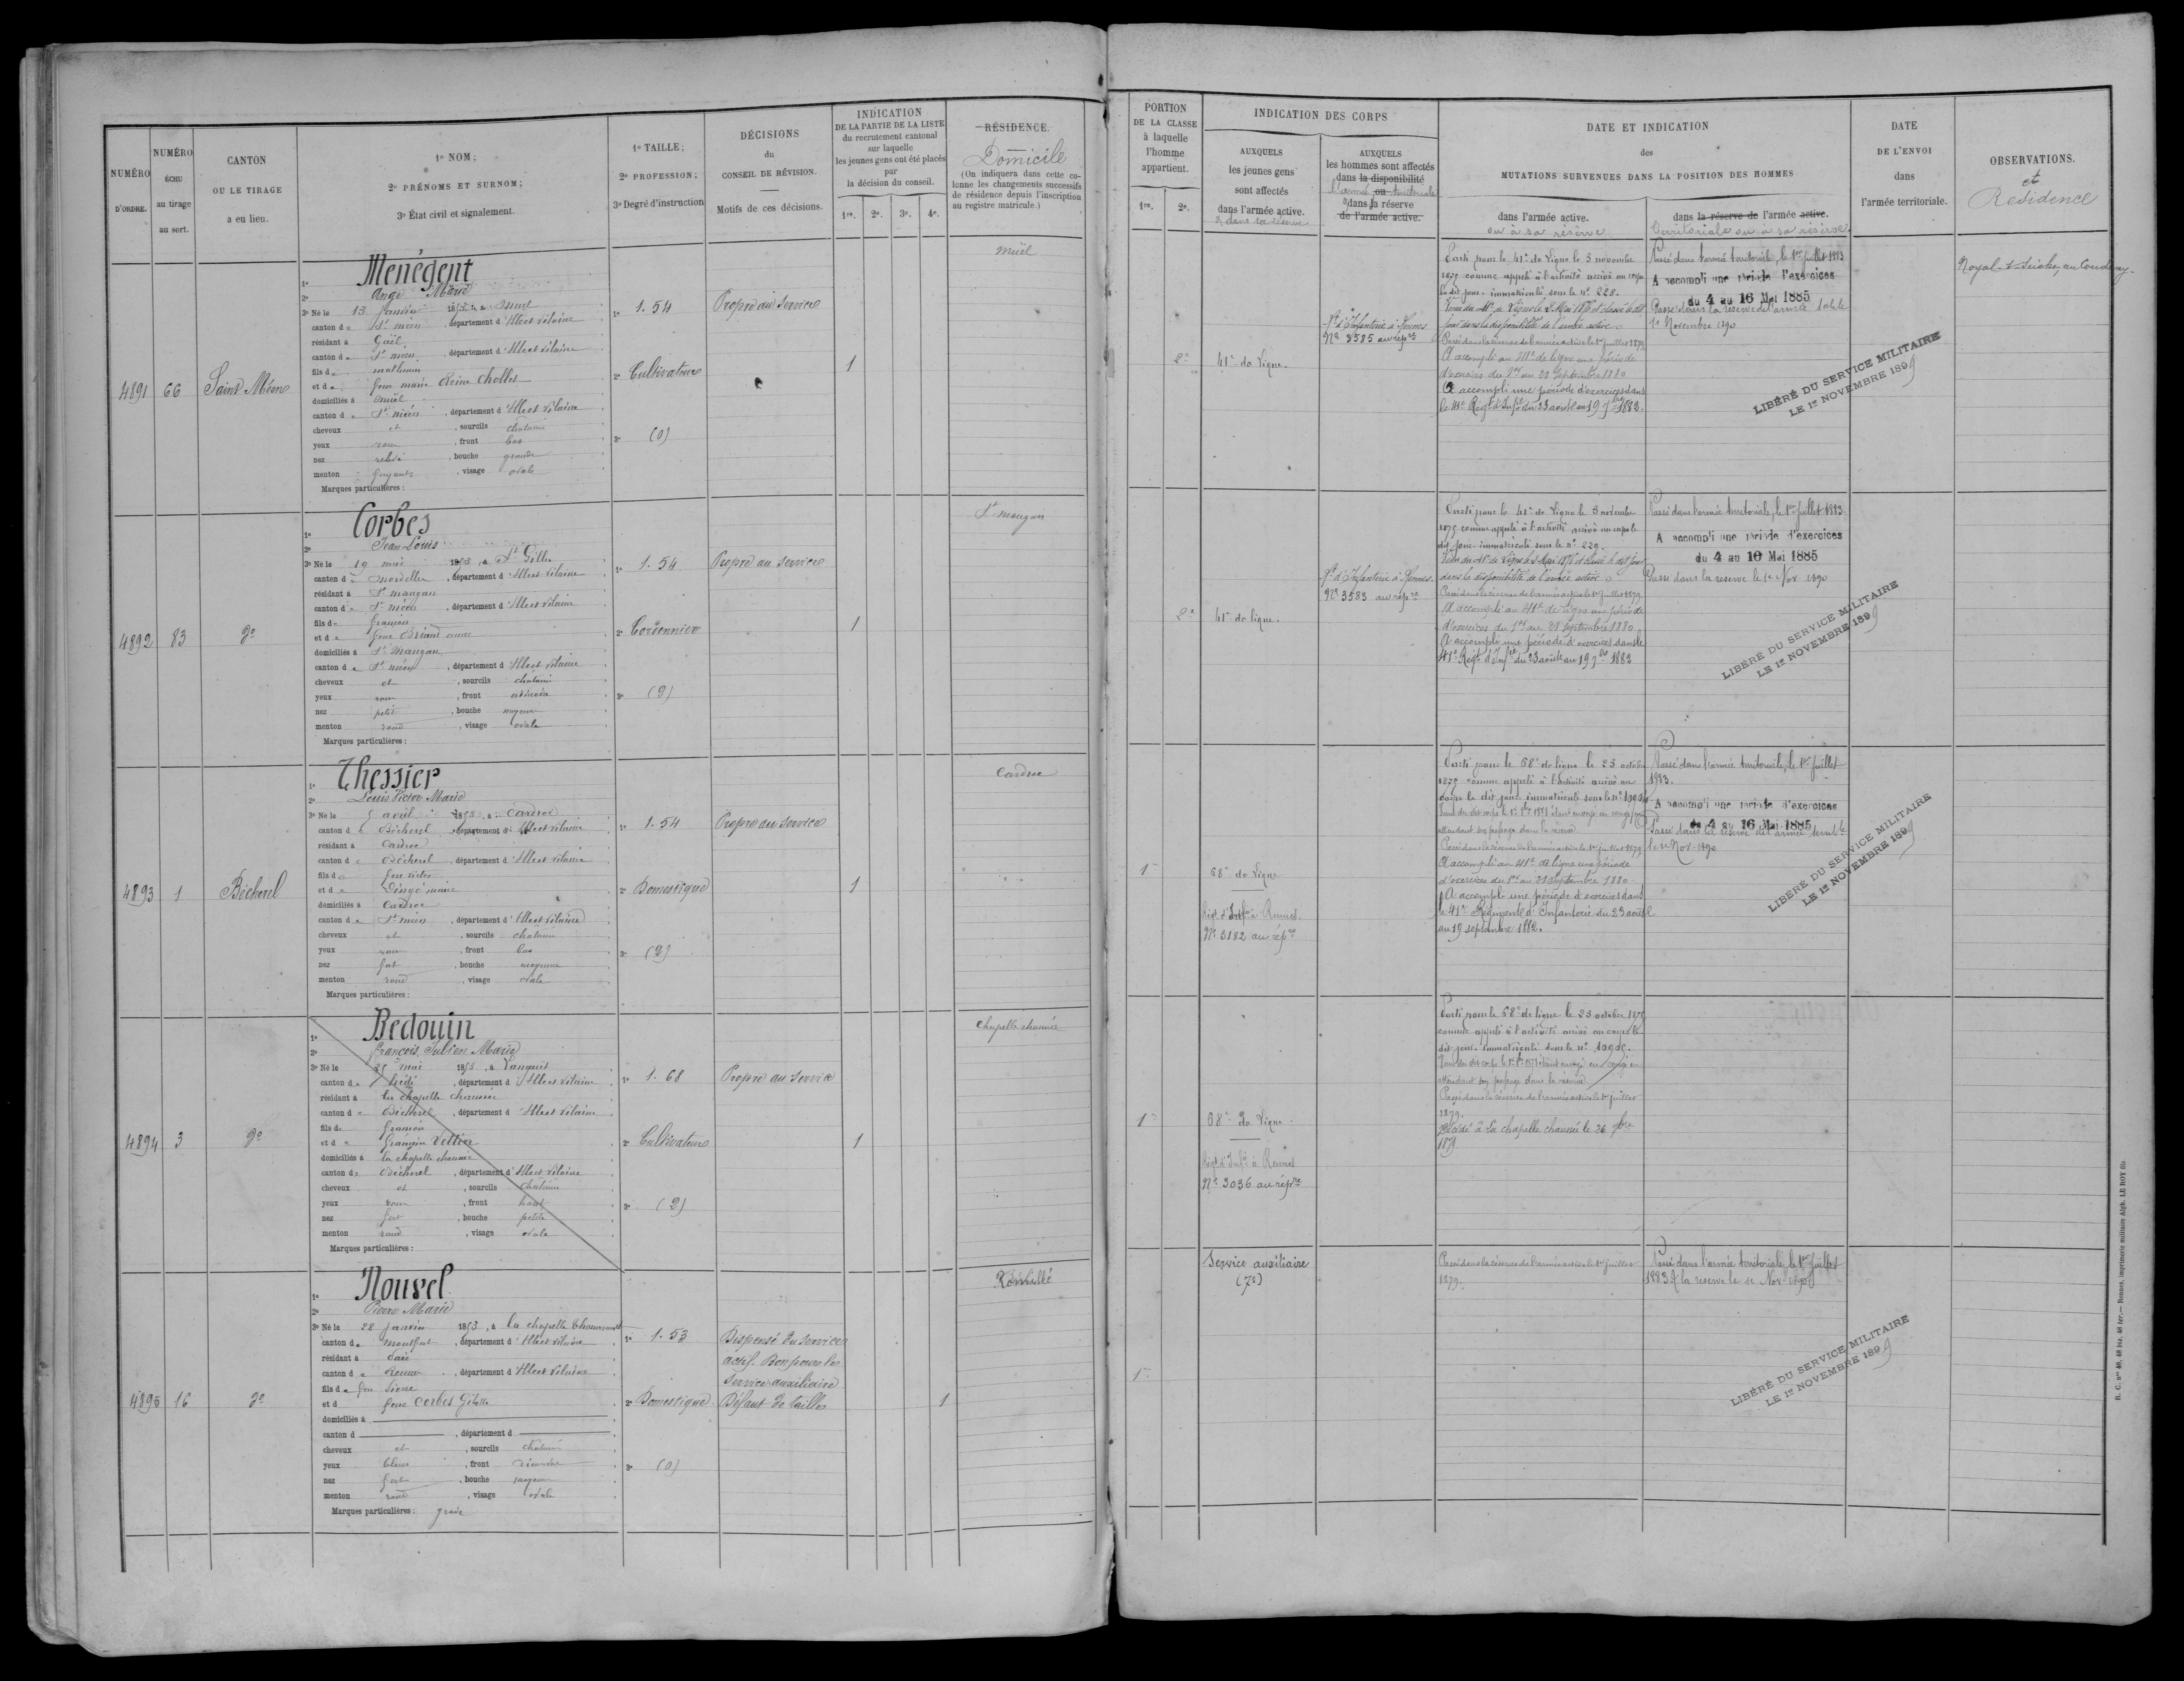 NUMÉRO
D'ORDRE.
NUMÉRO
ÉCHU
au tirage
au sort.
CANTON
OU LE TIRAGE
a eu lieu.
1º NOM;
2º PRÉNOMS ET SURNOM;
3º État civil et signalement.
1º TAILLE;
2º PROFESSION;
3º Degré d'instruction
DÉCISIONS
du
CONSEIL DE RÉVISION.
Motifs de ces décisions.
INDICATION
DE LA PARTIE DE LA LISTE
du recrutement cantonal
sur laquelle
les jeunes gens ont été placés
par
la décision du conseil.
1re. 2e. 3e. 4e.
RÉSIDENCE.
Domicile
(On indiquera dans cette co-
lonne les changements successifs
de résidence depuis l'inscription
au registre matricule.)
4891 66 Saint Méen
1º Menegent
2º Ange Marie
3º Né le 13 janvier 1853, à Muel
canton de St méen, département d'Ille et Vilaine
résidant à Gaël
canton de St méen, département d'Ille et Vilaine
fils de mathurin
et de feue marie Reine Chollet
domiciliés à muel
canton de St méen, département d'Ille et Vilaine
cheveux et, sourcils chatains
yeux roux, front bas
nez relevé, bouche grande
menton fuyant, visage ovale
Marques particulières :
1º 1.54
2º Cultivateur
3º (0)
Propre au service
1
muël
4892 83 dº
1º Corbes
2º Jean Louis
3º Né le 19 mai 1853, à St Gilles
canton de Mordelles, département d'Ille et Vilaine
résidant à St maugan
canton de St méen, département d'Ille et Vilaine
fils de françois
et de feue Briand anne
domiciliés à St Maugan
canton de St méen, département d'Ille et Vilaine
cheveux et, sourcils chatains
yeux roux, front
nez petit, bouche moyenne
menton rond, visage ovale
Marques particulières :
1º 1.54
2º Cordonnier
3º
Propre au service
1
St maugan
4893 1 Bécherel
1º Thessier
2º Louis Victor Marie
3º Né le 5 avril 1853, à Cardroc
canton de Bécherel, département d'Ille et Vilaine
résidant à Cardroc
canton de Bécherel, département d'Ille et Vilaine
fils de feu victor
et de
domiciliés à Cardroc
canton de St méen, département d'Ille et Vilaine
cheveux et, sourcils chatains
yeux roux, front bas
nez fort, bouche moyenne
menton rond, visage ovale
Marques particulières :
1º 1.54
2º Domestique
3º
Propre au service
1
Cardroc
4894 3 dº
1º Bedouin
2º françois Julien Marie
3º Né le 25 mai 1853, à Langouet
canton de hédé, département d'Ille et Vilaine
résidant à la chapelle chaussée
canton de Bécherel, département d'Ille et Vilaine
fils de françois
et de françoise Vettier
domiciliés à la chapelle chaussée
canton de Bécherel, département d'Ille et Vilaine
cheveux et, sourcils chatains
yeux roux, front haut
nez fort, bouche petite
menton rond, visage ovale
Marques particulières :
1º 1.68
2º Cultivateur
3º (2)
Propre au service
1
Chapelle chaussée
4895 16 dº
1º Nouvel
2º Pierre Marie
3º Né le 28 janvier 1853, à la chapelle Thouarault
canton de Montfort, département d'Ille et Vilaine
résidant à
canton de Rennes, département d'Ille et Vilaine
fils de feu Pierre
et d feue Corbes Gilette
domiciliés à
canton d, département d
cheveux et, sourcils chatains
yeux bleus, front
nez fort, bouche moyenne
menton rond, visage ovale
Marques particulières :
1º 1.53
2º Domestique
3º (0)
Dispensé du service
actif. Bon pour le
service auxiliaire
Défaut de taille
1
Romillé
PORTION
DE LA CLASSE
à laquelle
l'homme
appartient.
1re. 2e.
INDICATION DES CORPS
AUXQUELS
les jeunes gens
sont affectés
dans l'armée active.
& dans sa réserve
AUXQUELS
les hommes sont affectés
dans la disponibilité
l'armée ou territoriale
& dans la réserve
de l'armée active.
DATE ET INDICATION
des
MUTATIONS SURVENUES DANS LA POSITION DES HOMMES
dans l'armée active.
ou à sa réserve
dans la réserve de l'armée active.
territoriale ou à sa réserve.
DATE
DE L'ENVOI
dans
l'armée territoriale.
OBSERVATIONS.
et
Résidence
2e
41e de ligne.
Rt d'Infanterie à Rennes
Nº 3585 au répre
Parti pour le 41e de ligne le 5 novembre
1875 comme appelé à l'activité arrivé au corps
le dit jour. immatriculé sous le nº 228.
Passé dans la réserve de l'armée active le 1er juillet 1879
A accompli au 41e de ligne une période
d'exercices du 1er au 28 Septembre 1880
A accompli une période d'exercices dans
le 41e Régt d'Infie du 23 août au 19 7bre 1882.
Passé dans l'armée territoriale, le 1er juillet 1883
A accompli une période d'exercices
du 4 au 16 Mai 1885
Passé dans la réserve de l'armée territle le
1er Novembre 1890
LIBÉRÉ DU SERVICE MILITAIRE
LE 1er NOVEMBRE 1899
Noyal-s-Seiche, au Coudray
2e
41e de ligne.
Rt d'Infanterie à Rennes.
Nº 3583 au répre
Parti pour le 41e de ligne le 5 novembre
1875 comme appelé à l'activité arrivé au corps le
dit jour. immatriculé sous le nº 229.
dans la disponibilité de l'armée active.
Passé dans la réserve de l'armée active le 1er juillet 1879
A accompli au 41e de ligne une période
d'exercices du 1er au 28 Septembre 1880
A accompli une période d'exercices dans le
41e Régt d'Infie du 23 août au 19 7bre 1882
Passé dans l'armée territoriale, le 1er juillet 1883.
A accompli une période d'exercices
du 4 au 16 Mai 1885
Passé dans la réserve le 1er Nov. 1890
LIBÉRÉ DU SERVICE MILITAIRE
LE 1er NOVEMBRE 1899
1e
68e de ligne
Régt d'Infie à Rennes.
Nº 3182 au répre
Parti pour le 68e de ligne le 25 octobre
1875 comme appelé à l'activité arrivé au
corps le dit jour. immatriculé sous le nº
attendant son passage dans la réserve
Passé dans la réserve de l'armée active le 1er juillet 1879
A accompli au 41e de ligne une période
d'exercices du 1er au 28 Septembre 1880.
A accompli une période d'exercices dans
le 41e Régiment d'Infanterie du 23 août
au 19 septembre 1882.
Passé dans l'armée territoriale, le 1er juillet
1883.
A accompli une période d'exercices
du 4 au 16 Mai 1885
Passé dans la réserve de l'armée territle
le 1er Nov. 1890
LIBÉRÉ DU SERVICE MILITAIRE
LE 1er NOVEMBRE 1899
1e
68e de ligne
Régt d'Infie à Rennes
Nº 3036 au répre
Parti pour le 68e de ligne le 25 octobre 1875
comme appelé à l'activité arrivé au corps le
dit jour. immatriculé sous le nº
attendant son passage dans la réserve
Passé dans la réserve de l'armée active le 1er juillet
1879.
Décédé à La chapelle chaussée le 26
1879
1e
Service auxiliaire
(7e)
Passé dans la réserve de l'armée active le 1er juillet
1879.
Passé dans l'armée territoriale, le 1er juillet
1883 & la réserve le 1er Nov. 1890
LIBÉRÉ DU SERVICE MILITAIRE
LE 1er NOVEMBRE 1899
R. C. nos 48, 48 bis, 48 ter.— Rennes, imprimerie militaire Alph. LE ROY fils